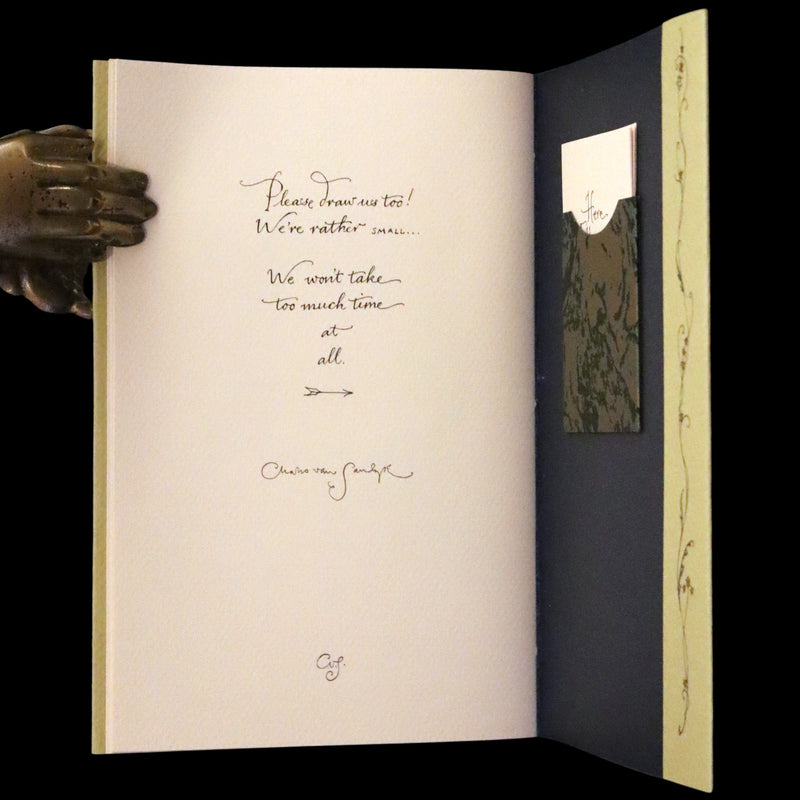 Please draw us too!
We're rather SMALL...
We won't take
too much time
at
all.
Charles van Sandwyk
CvS.
Here